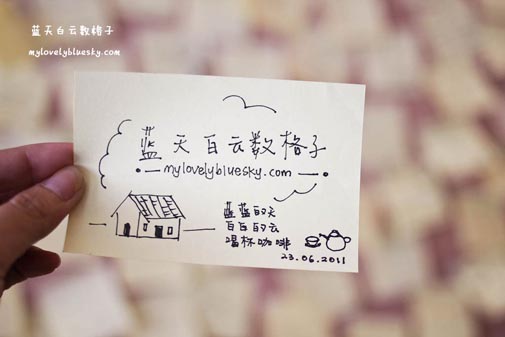 蓝天白云数格子
mylovelybluesky.com
蓝天白云数格子
mylovelybluesky.com
蓝蓝的天
白白的云
喝杯咖啡
23.06.2011